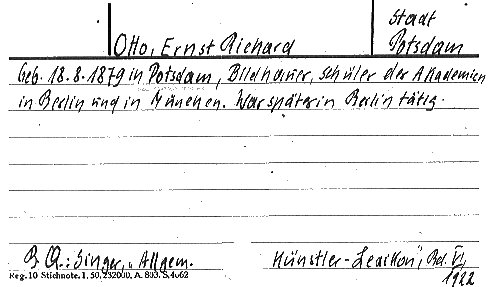 Stadt
Otto, Ernst Richard Potsdam
Geb. 18.8.1879 in Potsdam, Bildhauer, Schüler der Akademien
in Berlin und in München. War später in Berlin tätig.
B. Q.: Singer, „Allgem. Künstler-Lexikon", Bd. VI,
1922
Reg. 10 Stichnote. 1, 50, 232000, A. 803. S. 4662